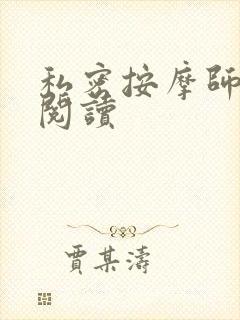 私密按摩師
閱讀
賈某濤